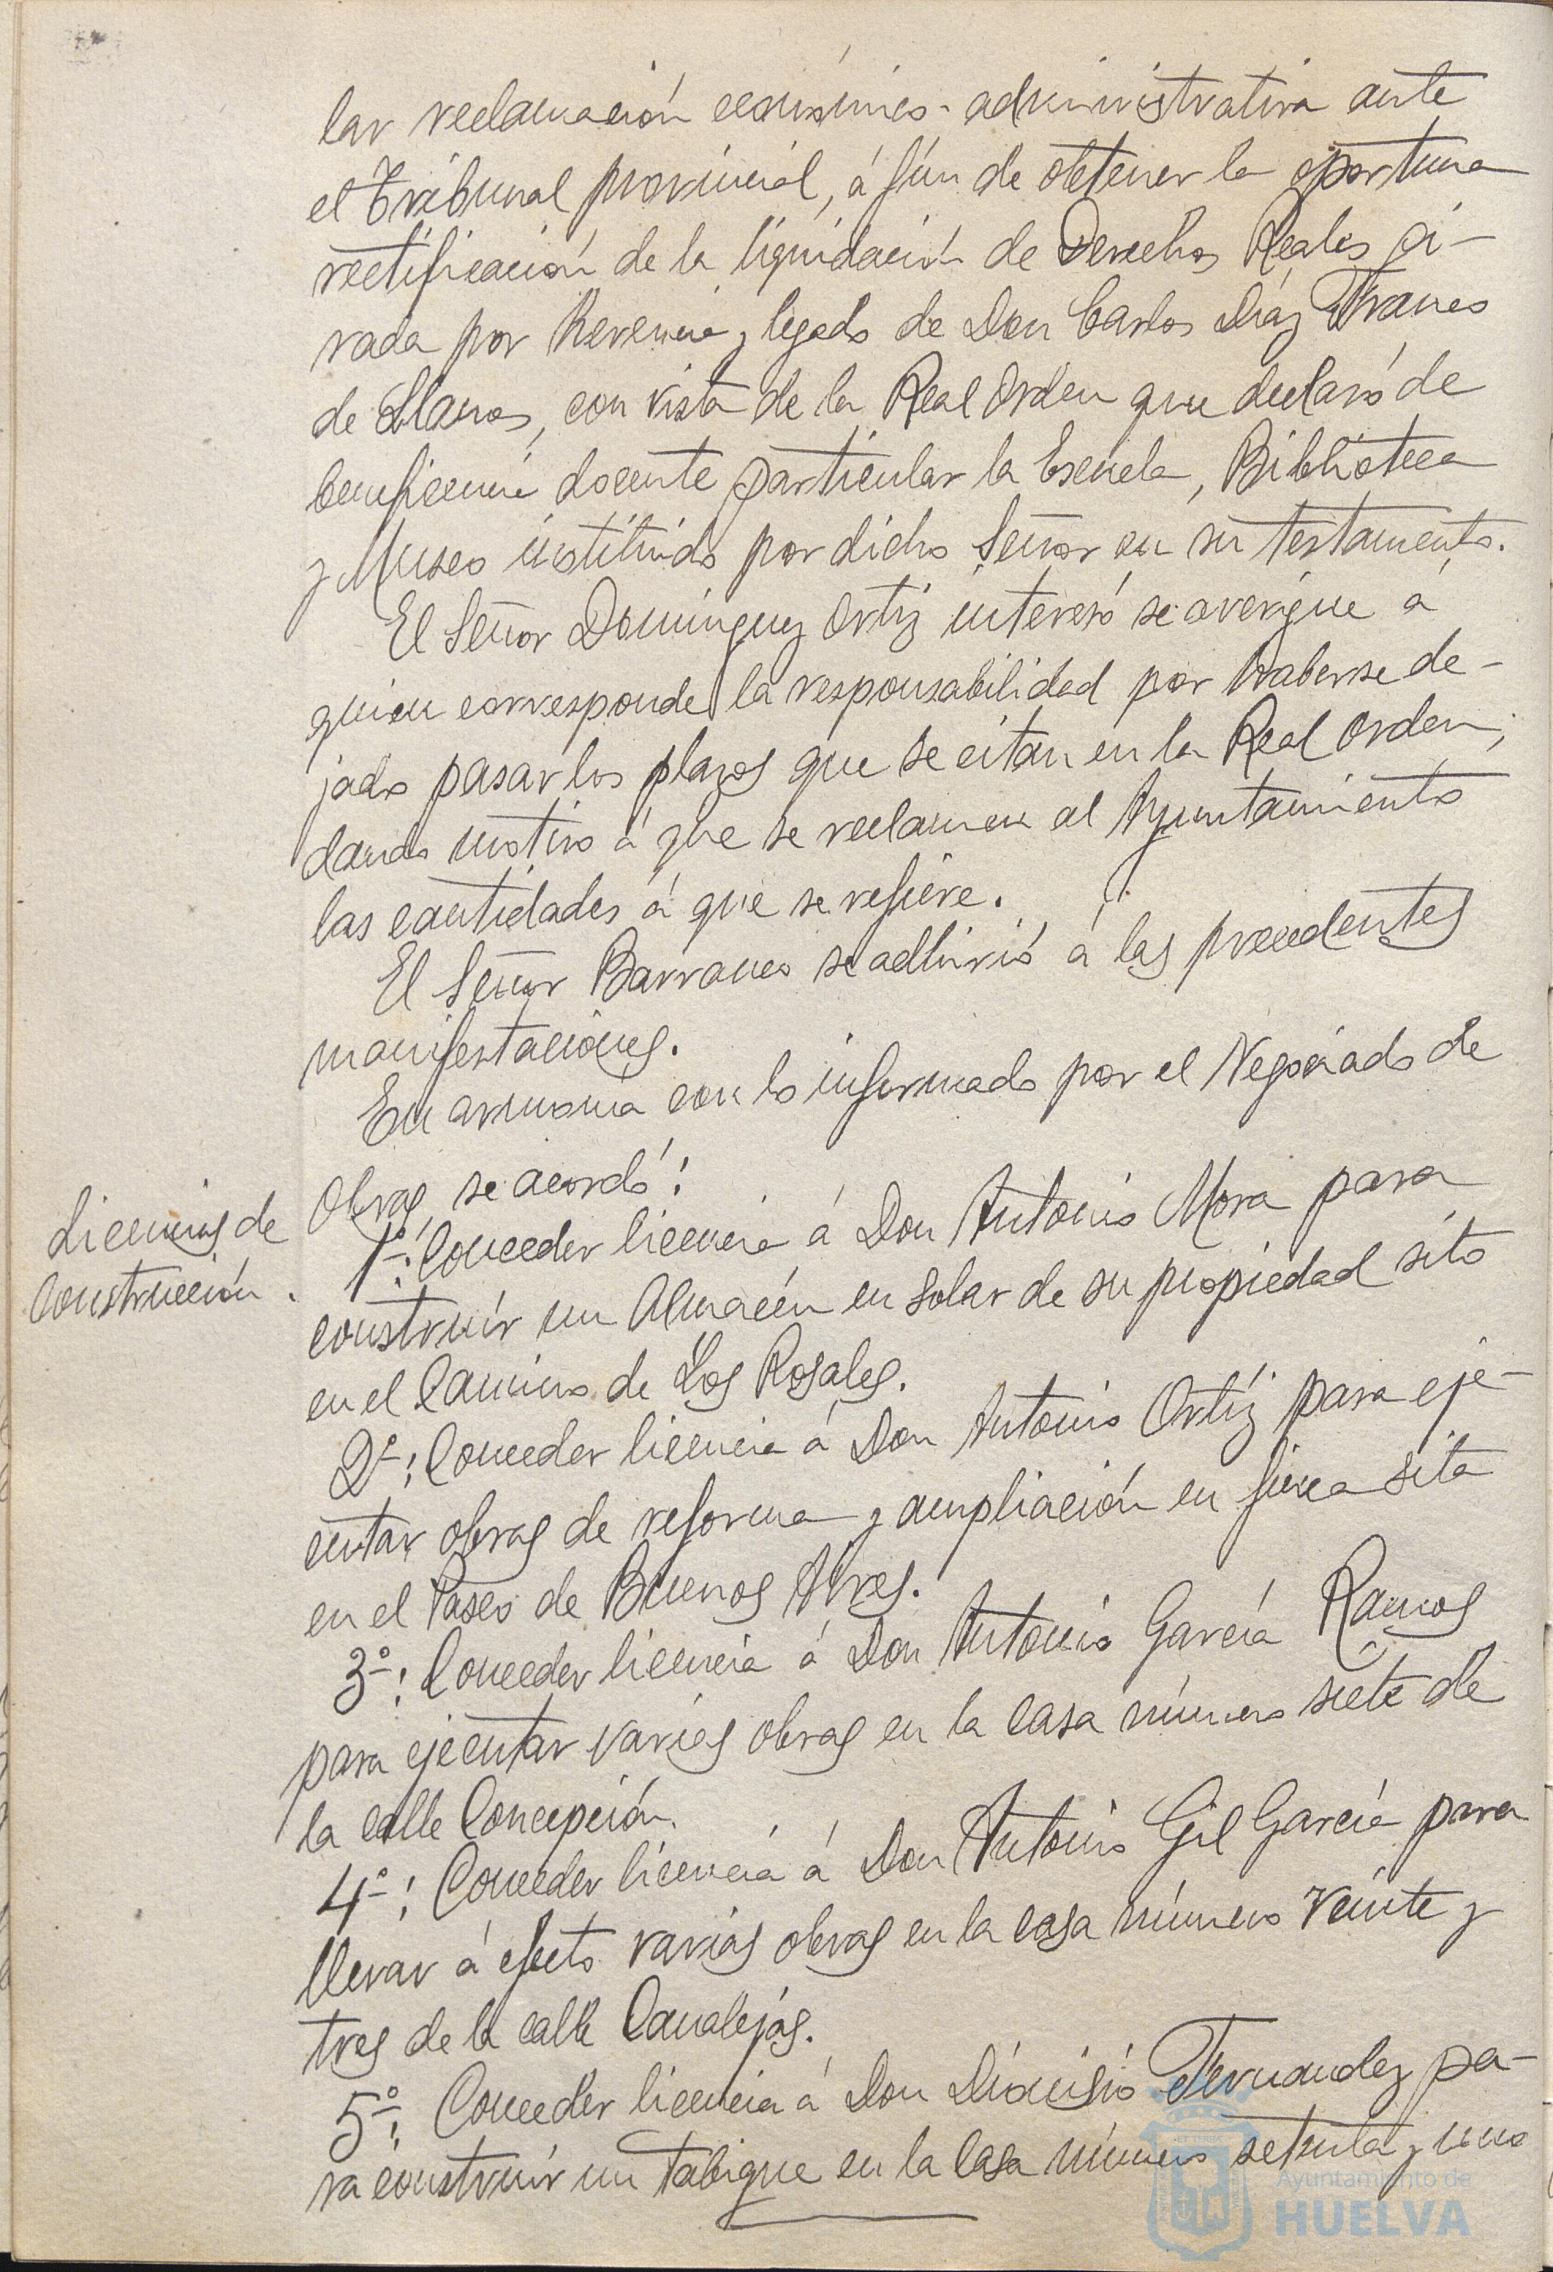 lar reclamación económico-administrativa ante
el Tribunal provincial, á fín de obtener la oportuna
rectificación de la liquidación de Derechos Reales gi-
rada por herencia y legado de Don Carlos Díaz Franco
de Llanos, con vista de la Real Orden que declaró de
beneficencia docente particular la Escuela, Biblioteca
y Museo instituido por dicho Señor en su testamento.
El Señor Dominguez Ortiz interesó se averigüe á
quien corresponde la responsabilidad por haberse de-
jado pasar los plazos que se citan en la Real Orden,
dando motivo á que se reclamen al Ayuntamiento
las cantidades á que se refiere.
El Señor Barranco se adhirió á las precedentes
manifestaciones.
En armonia con lo informado por el Negociado de
Licencias de
Construcción.
Obras, se acordó:
1º: Conceder licencia á Don Antonio Mora para
construír un Almacén en solar de su propiedad sito
en el Camino de Los Rosales.
2º: Conceder licencia á Don Antonio Ortíz para eje-
cutar obras de reforma y ampliación en finca sita
en el Paseo de Buenos Aires.
3º: Conceder licencia á Don Antonio García Ramos
para ejecutar varias obras en la casa número siete de
la calle Concepción.
4º: Conceder licencia á Don Antonio Gil García para
llevar á efecto varias obras en la casa número veinte y
tres de la calle Canalejas.
5º: Conceder licencia á Don Dionisio Fernandez pa-
ra construír un tabique en la casa número setenta y uno
Ayuntamiento de
HUELVA